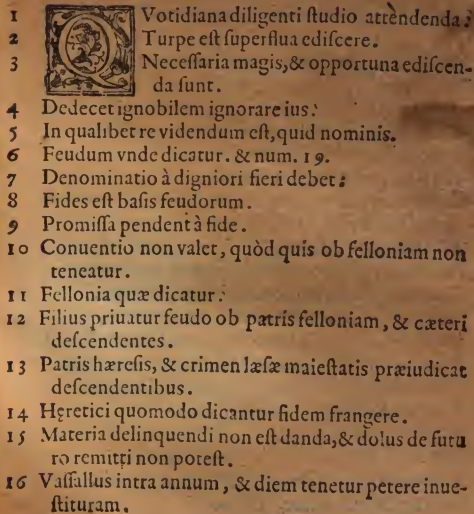 1 QVotidiana diligenti ſtudio attèndenda:
2 Turpe eſt ſuperflua ediſcere.
3 Neceſſaria magis, & opportuna ediſcen-
da ſunt.
4 Dedecet ignobilem ignorare ius:
5 In qualibet re videndum eſt, quid nominis.
6 Feudum vnde dicatur. & num. 19.
7 Denominatio à digniori fieri debet:
8 Fides eſt baſis feudorum.
9 Promiſſa pendent à fide.
10 Conuentio non valet, quòd quis ob felloniam non
teneatur.
11 Fellonia quæ dicatur:
12 Filius priuatur feudo ob patris felloniam, & cæteri
deſcendentes.
13 Patris hæreſis, & crimen læſæ maieſtatis præiudicat
deſcendentibus.
14 Hęretici quomodo dicantur fidem frangere.
15 Materia delinquendi non eſt danda, & dolus de futu
ro remitti non poteſt.
16 Vaſſallus intra annum, & diem tenetur petere inue-
ſtituram.